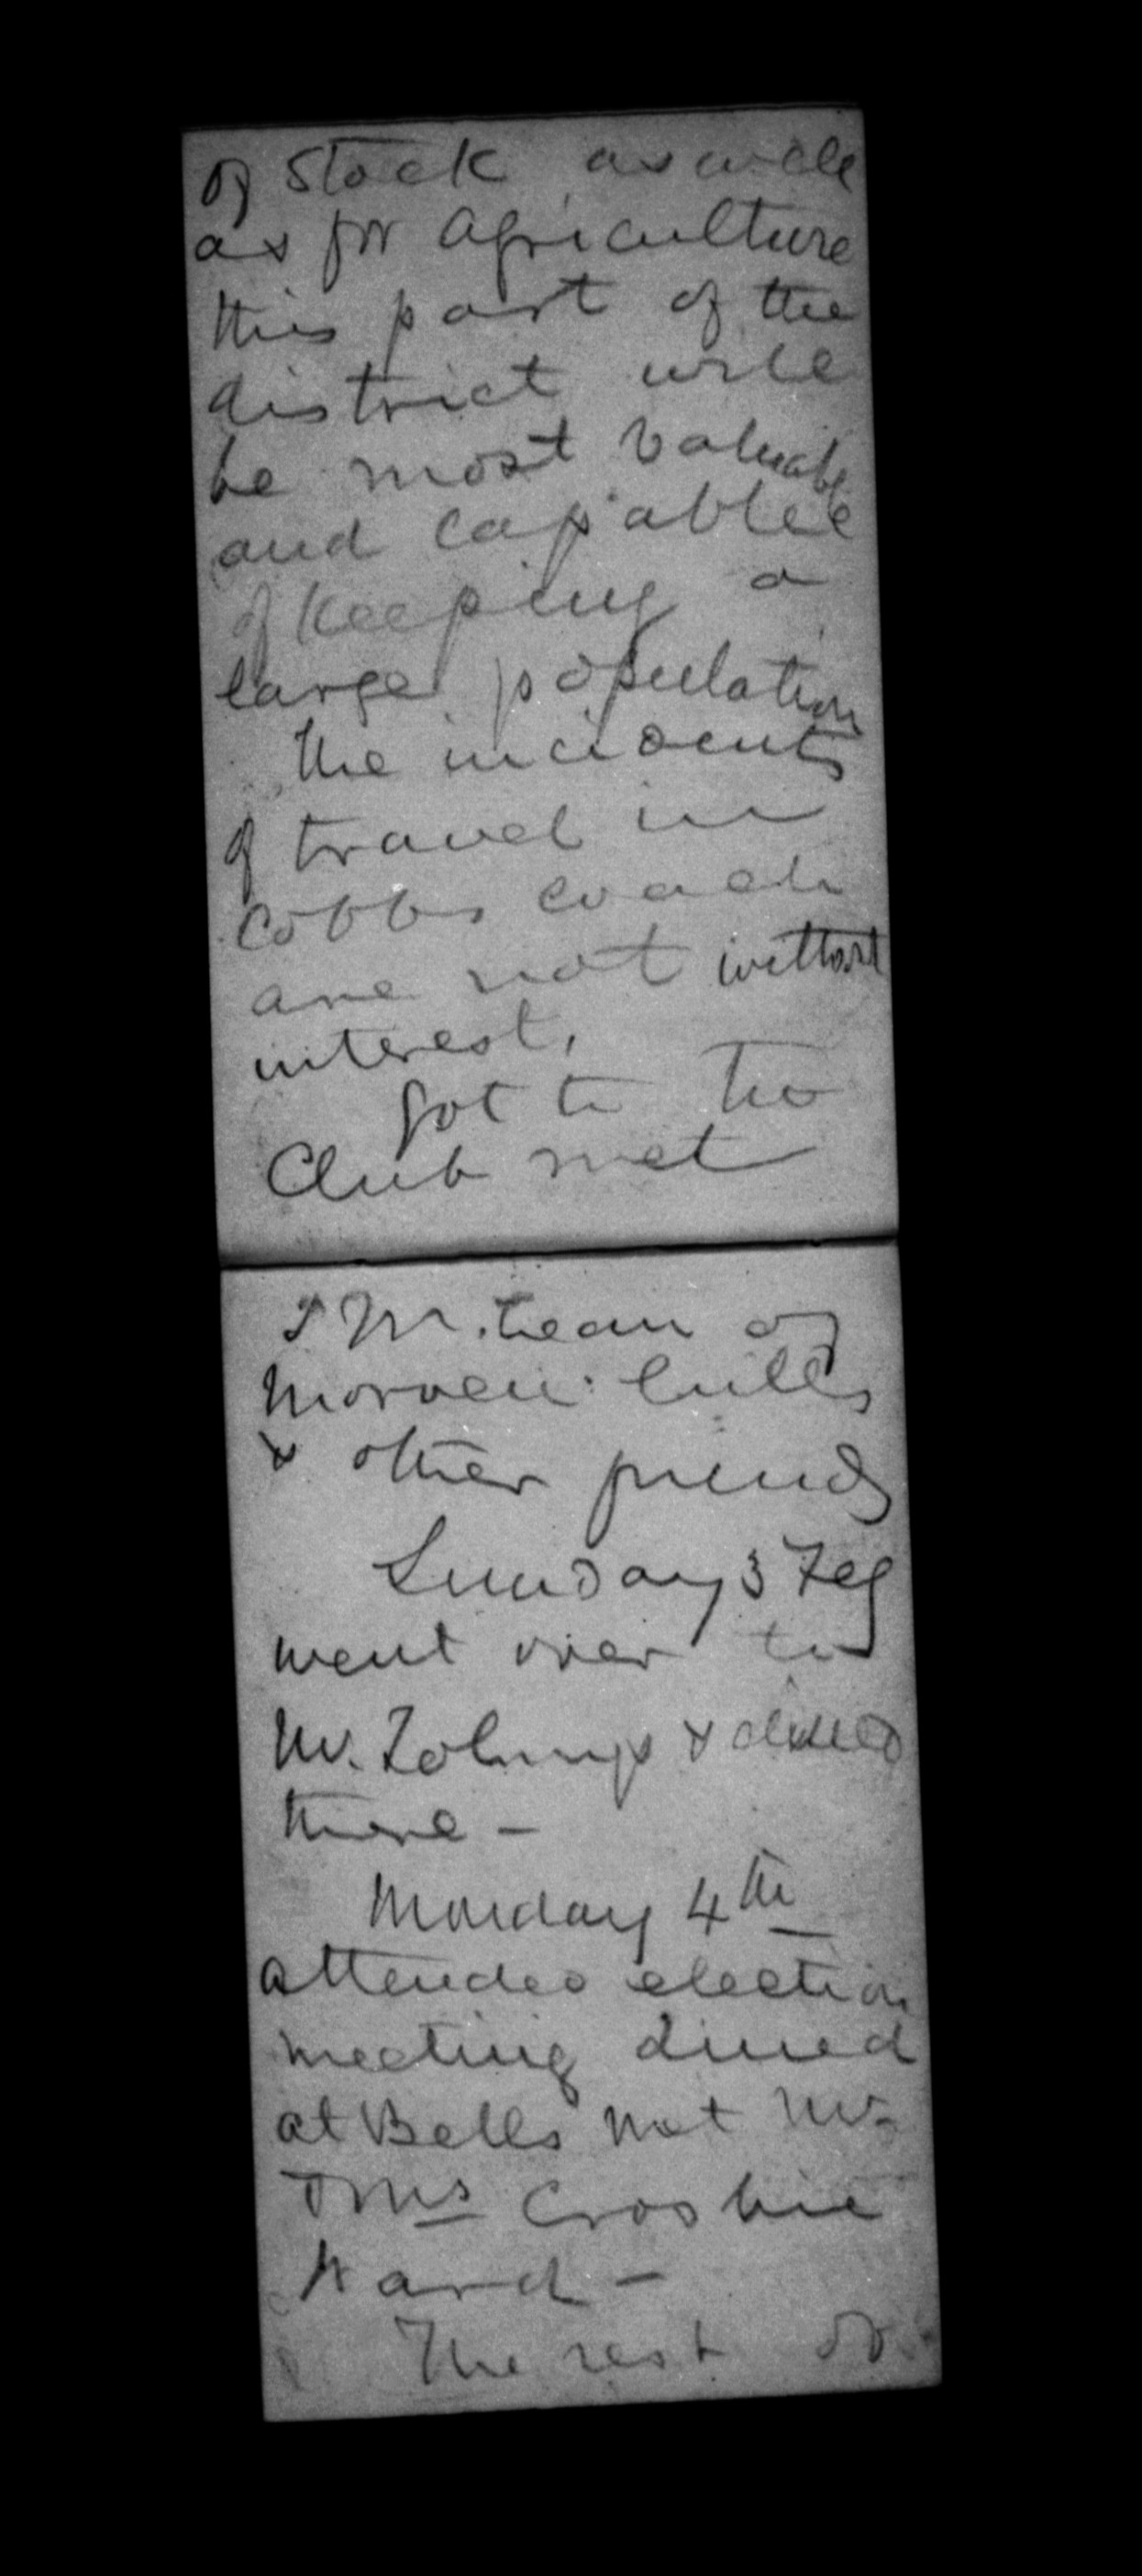 of Stock as well
as for agriculture
this part of the
district will
be most valuable
and capable
of keeping a
large population
The incidents
of travel in
Cobbs coach
are not without
interest,
Got to the
Club met
McLean of
Morven hills
& other friends
Sunday 3
went over to
Mr. & dined
there -
Monday 4th
attended election
meeting dined
at Bells met Mr.
& Mrs Crosbie
Ward -
The rest of